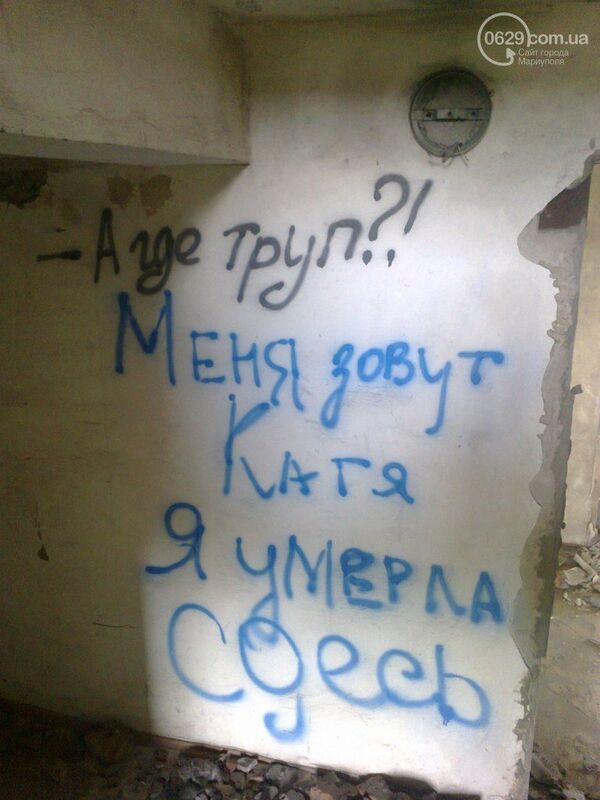 0629com.ua
Сайт города
Мариуполя
- А где труп?!
Меня зовут
Катя
Я умерла
Сдесь